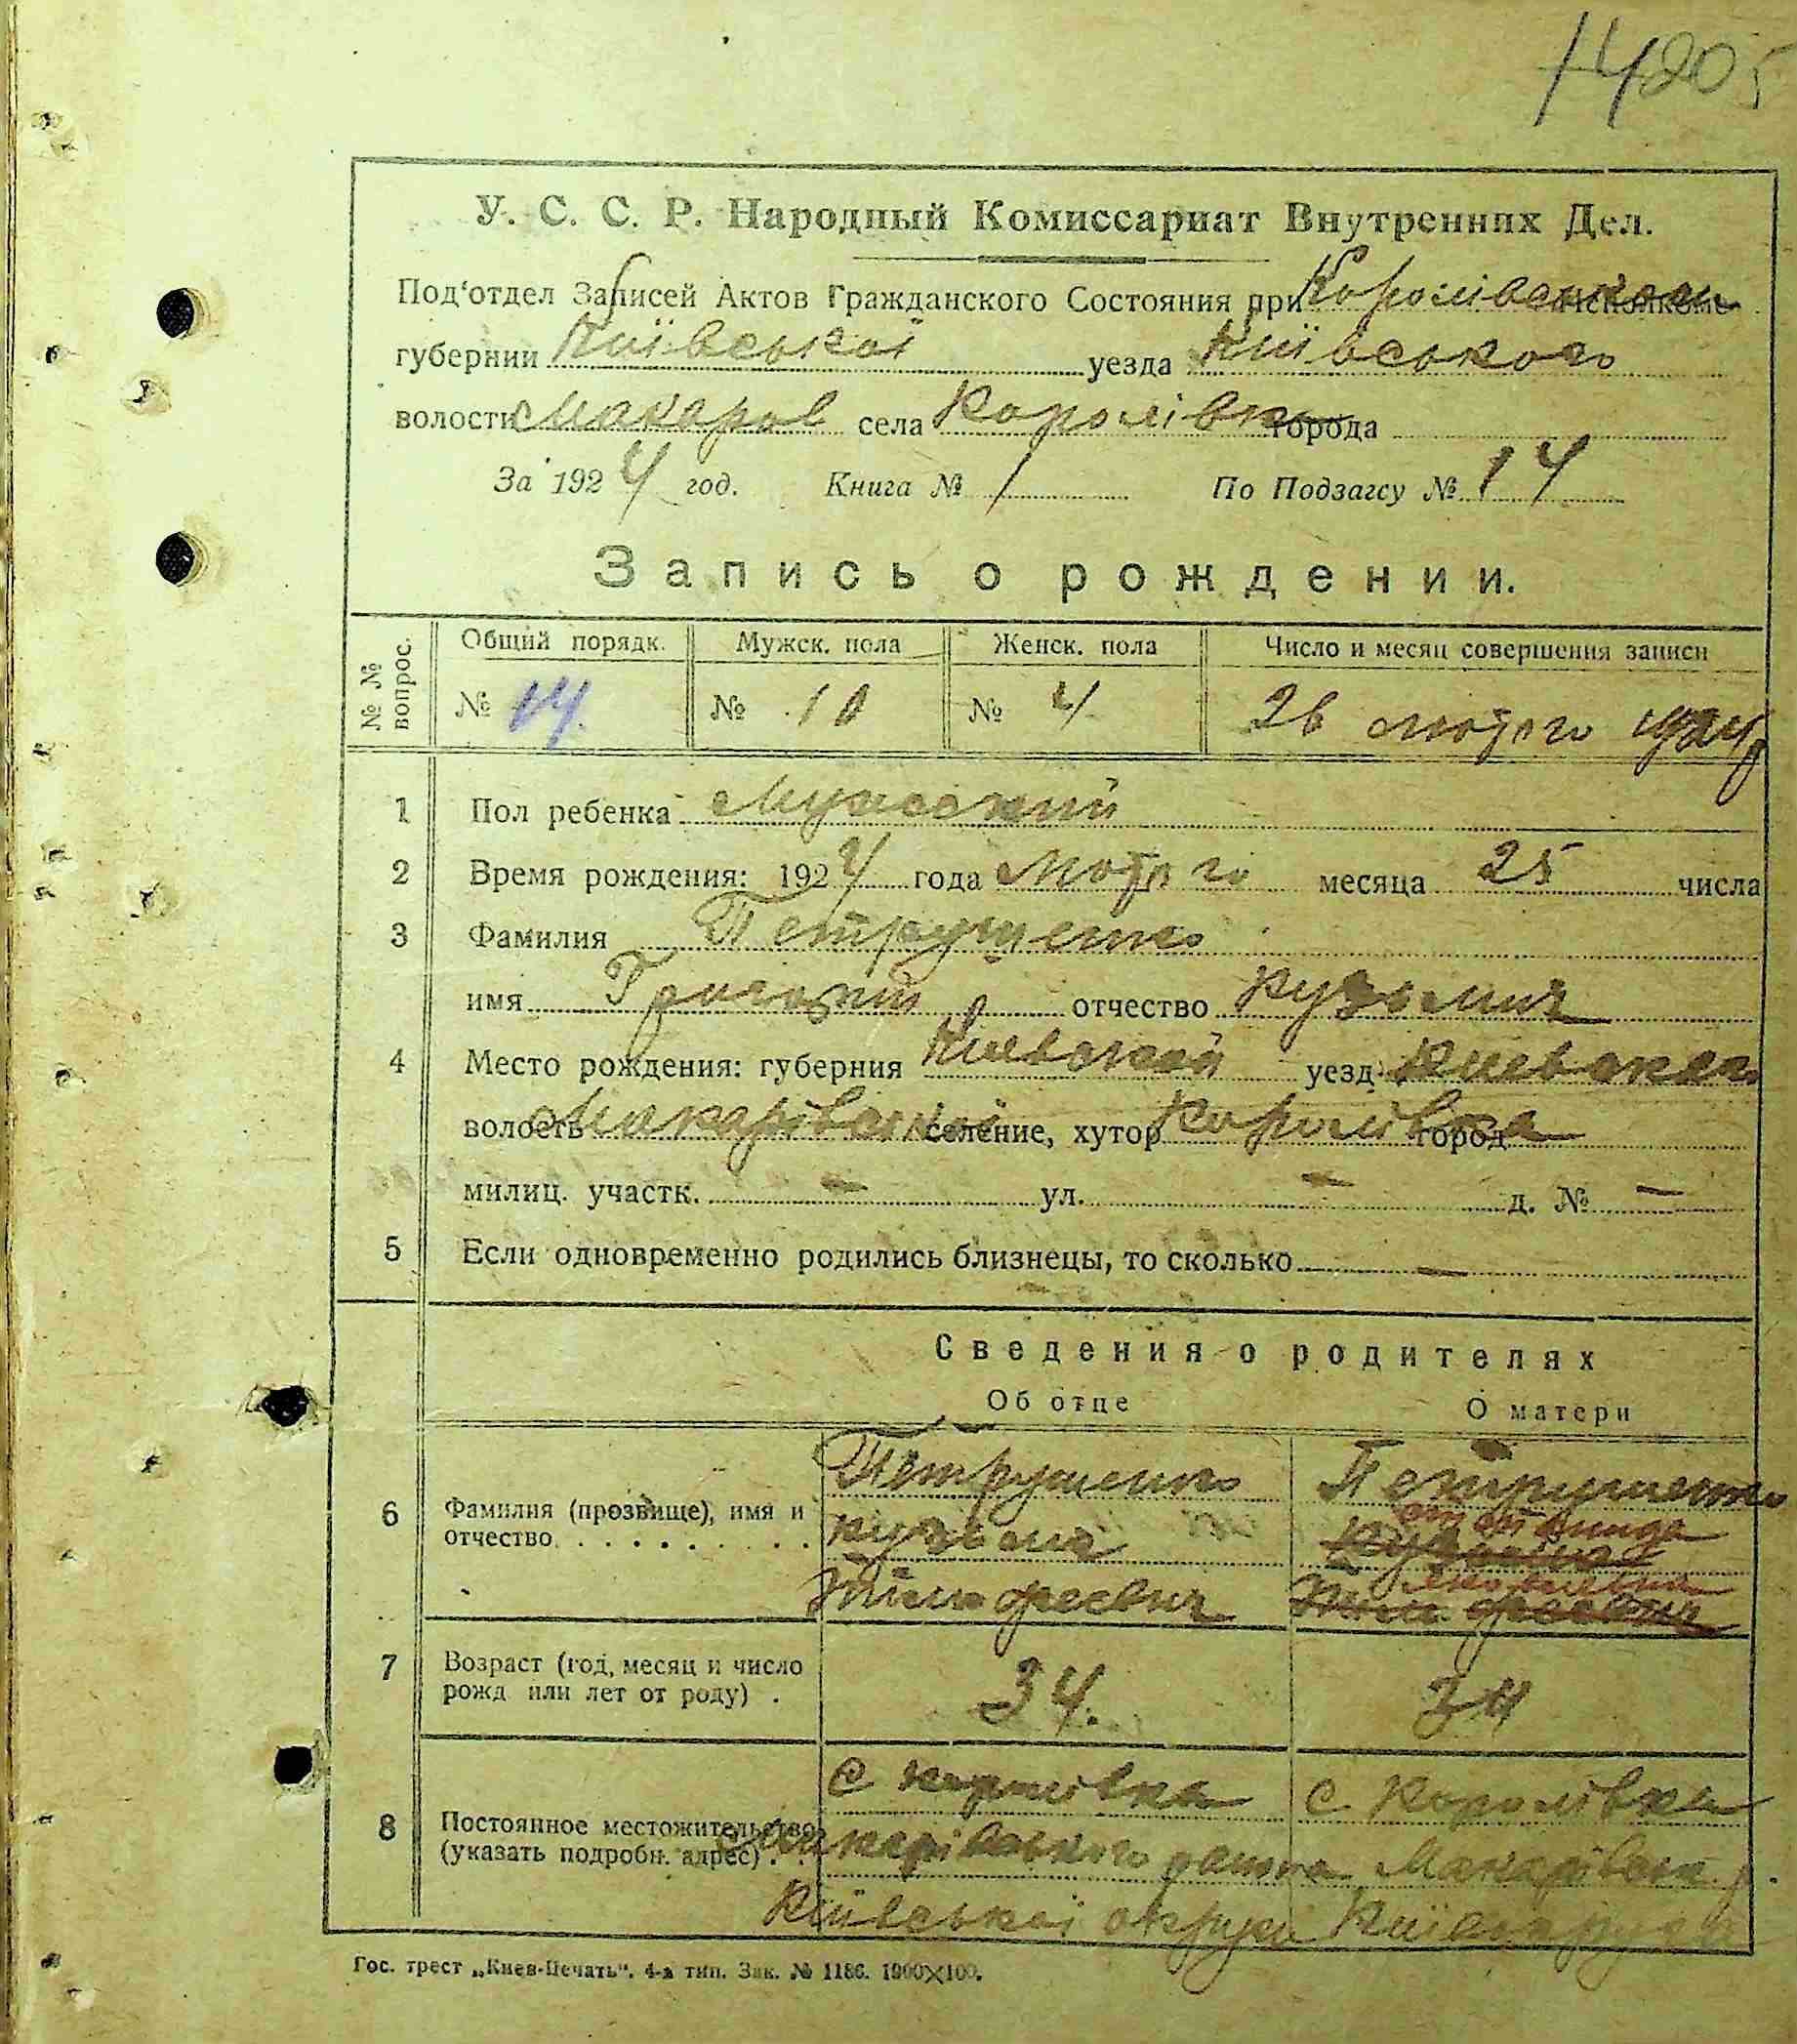 14205
У. С. С. Р. Народный Комиссариат Внутренних Дел.
Под'отдел Записей Актов Гражданского Состояния при Королівськом исполкоме
губернии Київської уезда Київського
волости Макаров села Королівка города
За 1924 год. Книга № 1 По Подзагсу № 14
Запись о рождении.
№ № вопрос. Общий порядк. Мужск. пола Женск. пола Число и месяц совершения записи
№ 14. № 10 № 4 26 лютого 1924 р
1 Пол ребенка Мужеский
2 Время рождения: 1924 года Лютого месяца 25 числа
3 Фамилия Петрущенко
имя Григорій отчество Кузьмич
4 Место рождения: губерния Киевской уезд Киевского
волость Макарівської селение, хутор Королівка город
милиц. участк. – ул. – д. № –
5 Если одновременно родились близнецы, то сколько –
Сведения о родителях
Об отце О матери
Петрущенко Петрущенко
6 Фамилия (прозвище), имя и
отчество Кузьма
Тимофеевич
7 Возраст (год, месяц и число
рожд или лет от роду) . 34. 34
с Королівка с Королівка
8 Постоянное местожительство
(указать подробн. адрес) . . Макарівського району Макарівськ. р.
Київської округи Київ округи
Гос. трест „Киев-Печать“. 4-я тип. Зак. № 1186. 1900×100.